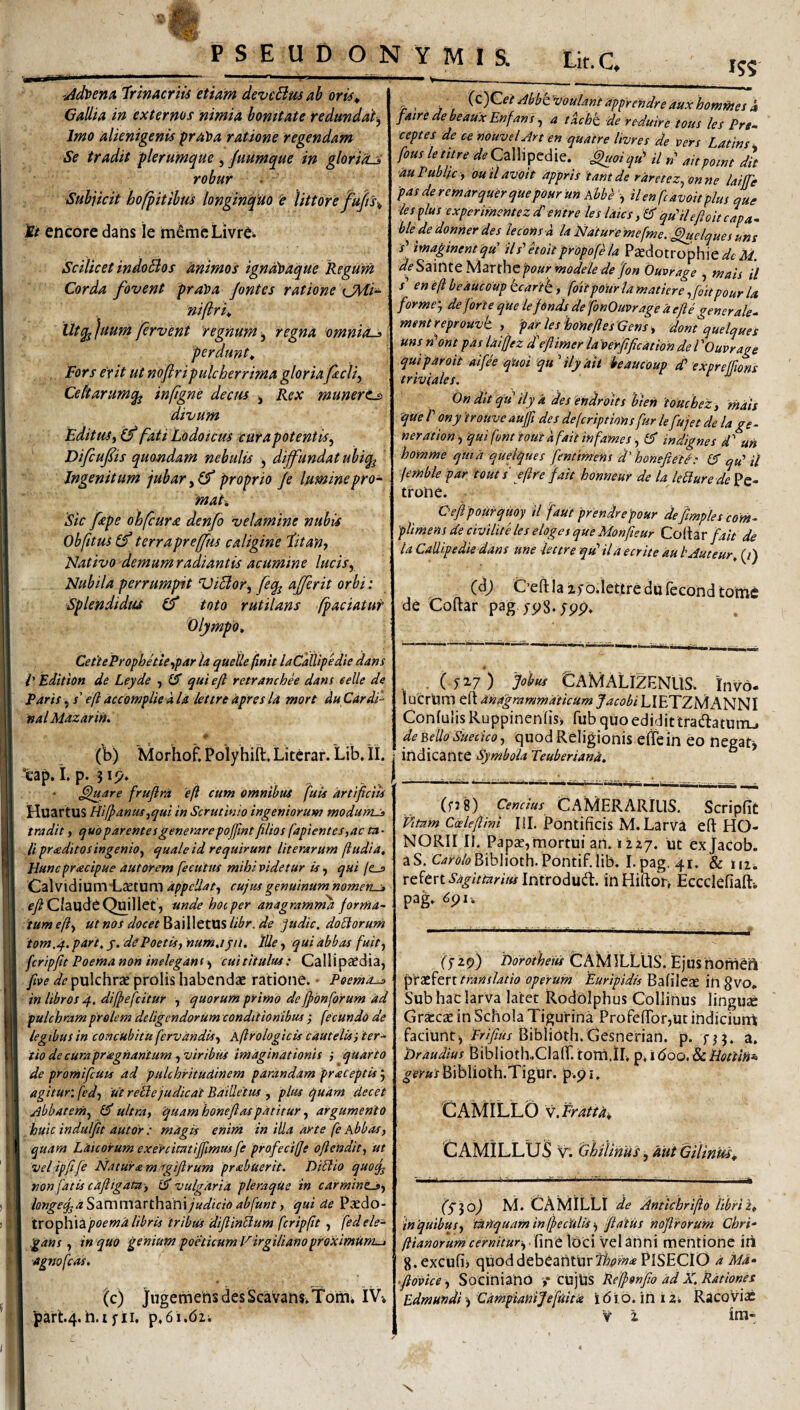 PSEUDONYMIS. Lit. C.
155
Advena Trinacriis etiam devectus ab oris.
Gallia in externos nimia bonitate redundat,
Imo alienigenis prava ratione regendam
Se tradit plerumque, suumque in gloria
robur
Subjicit hospitibus longinquo e littore fusis.
Et encore dans le même Livre.
Scilicet indoctos animos ignavaque Regum
Corda fovent prava fontes ratione Mi-
nistri.
Utq; suum fervent regnum, regna omnia
perdunt.
Fors erit ut nostri pulcherrima gloria sæcli,
Celtarumq; insigne decus, Rex munere
divum
Editus, & fati Lodoicus cura potentis,
Discussis quondam nebulis, diffundat ubiq;
Ingenitum jubar, & proprio se lumine pro-
mat.
Sic sæpe obscuræ denso velamine nubis
Obsitus & terra pressus caligine Titan,
Nativo demum radiantis acumine lucis,
Nubila perrumpit Victor, seq; asserit orbi:
Splendidus & toto rutilans spaciatur
Olympo.
Cette Prophétie, par la quelle finit la Callipédie dans
l' Edition de Leyde, & qui est retranchée dans celle de
Paris, s' est accomplie à la lettre apres la mort du Cardi-
nal Mazarin.
(b) Morhof. Polyhist. Literar. Lib. II.
cap. I. p. 319.
Quare frustra est cum omnibus suis artificiis
Huartus Hispanus, qui in Scrutinio ingeniorum modum
tradit, quo parentes generare possint filios sapientes, ac ta-
li præditos ingenio, quale id requirunt literarum studia.
Hunc præcipue autorem secutus mihi videtur is, qui se
Calvidium Lætum appellat, cujus genuinum nomen
est Claude Quillet, unde hoc per anagramma forma-
tum est, ut nos docet Bailletus libr. de judic. doctorum
tom. 4. part. 5. de Poetis, num. 1511. Ille, qui abbas fuit,
scripsit Poema non inelegans, cui titulus: Callipædia,
sive de pulchræ prolis habendæ ratione. Poema
in libros 4. dispescitur, quorum primo de sponsorum ad
pulchram prolem deligendorum conditionibus; secundo de
legibus in concubitu servandis, Astrologicis cautelis; ter-
tio de cura prægnantum, viribus imaginationis; quarto
de promiscuis ad pulchritudinem parandam præceptis;
agitur: sed, ut recte judicat Bailletus, plus quam decet
Abbatem, & ultra, quam honestas patitur, argumento
huic indulsit autor: magis enim in illa arte se Abbas,
quam Laicorum exercitatissimus se profecisse ostendit, ut
vel ipsi se Naturæ magistrum præbuerit. Dictio quoq;
non satis castigata, & vulgaria pleraque in carmine,
longeq; a Sammarthani judicio absunt, qui de Pædo-
trophia poema libris tribus distinctum scripsit, sed ele-
gans, in quo genium poëticum Virgiliano proximum
agnoscas.
(c) Jugemens des Scavans. Tom. IV.
part. 4. n. 1511. p. 61. 62.
(c) Cet Abbé voulant apprendre aux hommes à
faire de beaux Enfans, a taché de reduire tous les Pre-
ceptes de ce nouvel Art en quatre livres de vers Latins,
sous le titre de Callipedie. Quoi qu' il n' ait point dit
au Public, ou il avoit appris tant de raretez, on ne laisse
pas de remarquer que pour un Abbé, il en scavoit plus que
les plus experimentez d' entre les laics, & qu' il estoit capa-
ble de donner des lecons à la Nature mesme. Quelques uns
s' imaginent qu' il s' étoit proposé la Pædotrophie de M.
de Sainte Marthe pour modele de son Ouvrage, mais il
s' en est beaucoup écarté, soit pour la matiere, soit pour la
forme; de sorte que le fonds de son Ouvrage a esté generale-
ment reprouvé, par les honestes Gens, dont quelques
uns n' ont pas laissez d' estimer la versification de l' Ouvrage
qui paroit aisée quoi qu' il y ait beaucoup d' expressions
triviales.
On dit qu' il y a des endroits bien touchez, mais
que l' on y trouve aussi des descriptions sur le sujet de la ge-
neration, qui sont tout à fait infames, & indignes d' un
homme qui a quelques sentimens d' honesteté: & qu' il
semble par tout s' estre fait honneur de la lecture de Pe-
trone.
C' est pourquoy il faut prendre pour de simples com-
plimens de civilité les eloges que Monsieur Costar fait de
la Callipedie dans une lettre qu' il a ecrite au l' Auteur. (1)
(d) C'est la 250. lettre du second tome
de Costar pag 598. 599.
(527) Jobus CAMALIZENUS. Invo-
lucrum est anagrammaticum Jacobi LIETZMANNI
Consulis Ruppinensis, sub quo edidit tractatum
de Bello Suecico, quod Religionis esse in eo negat,
indicante Symbola Teuberiana.
(528) Cencius CAMERARIUS. Scripsit
Vitam Cœlestini III. Pontificis M. Larva est HO-
NORII II. Papæ, mortui an. 1227. ut ex Jacob.
a S. Carolo Biblioth. Pontif. lib. I. pag. 41. & 112.
refert Sagittarius Introduct. in Histor. Ecccclesiast.
pag. 691.
(529) Dorotheus CAMILLUS. Ejus nomen
præfert translatio operum Euripidis Basileæ in 8vo.
Sub hac larva latet Rodolphus Collinus linguæ
Græcæ in Schola Tigurina Professor, ut indicium
faciunt, Frisius Biblioth. Gesnerian. p. 533. a.
Draudius Biblioth. Class. tom. II. p. 1600. & Hottin-
gerus Biblioth. Tigur. p. 91.
CAMILLO v. Fratta.
CAMILLUS v. Ghilinus, aut Gilinus.
(530) M. CAMILLI de Antichristo libri 2.
in quibus, tanquam in speculis, status nostrorum Chri-
stianorum cernitur, sine loci vel anni mentione in
8. excusi, quod debeantur Thomæ PISECIO a Mar-
stovice, Sociniano; cujus Responsio ad X. Rationes
Edmundi, Campiani Jesuitæ 1610. in 12. Racoviæ
V 2 im-